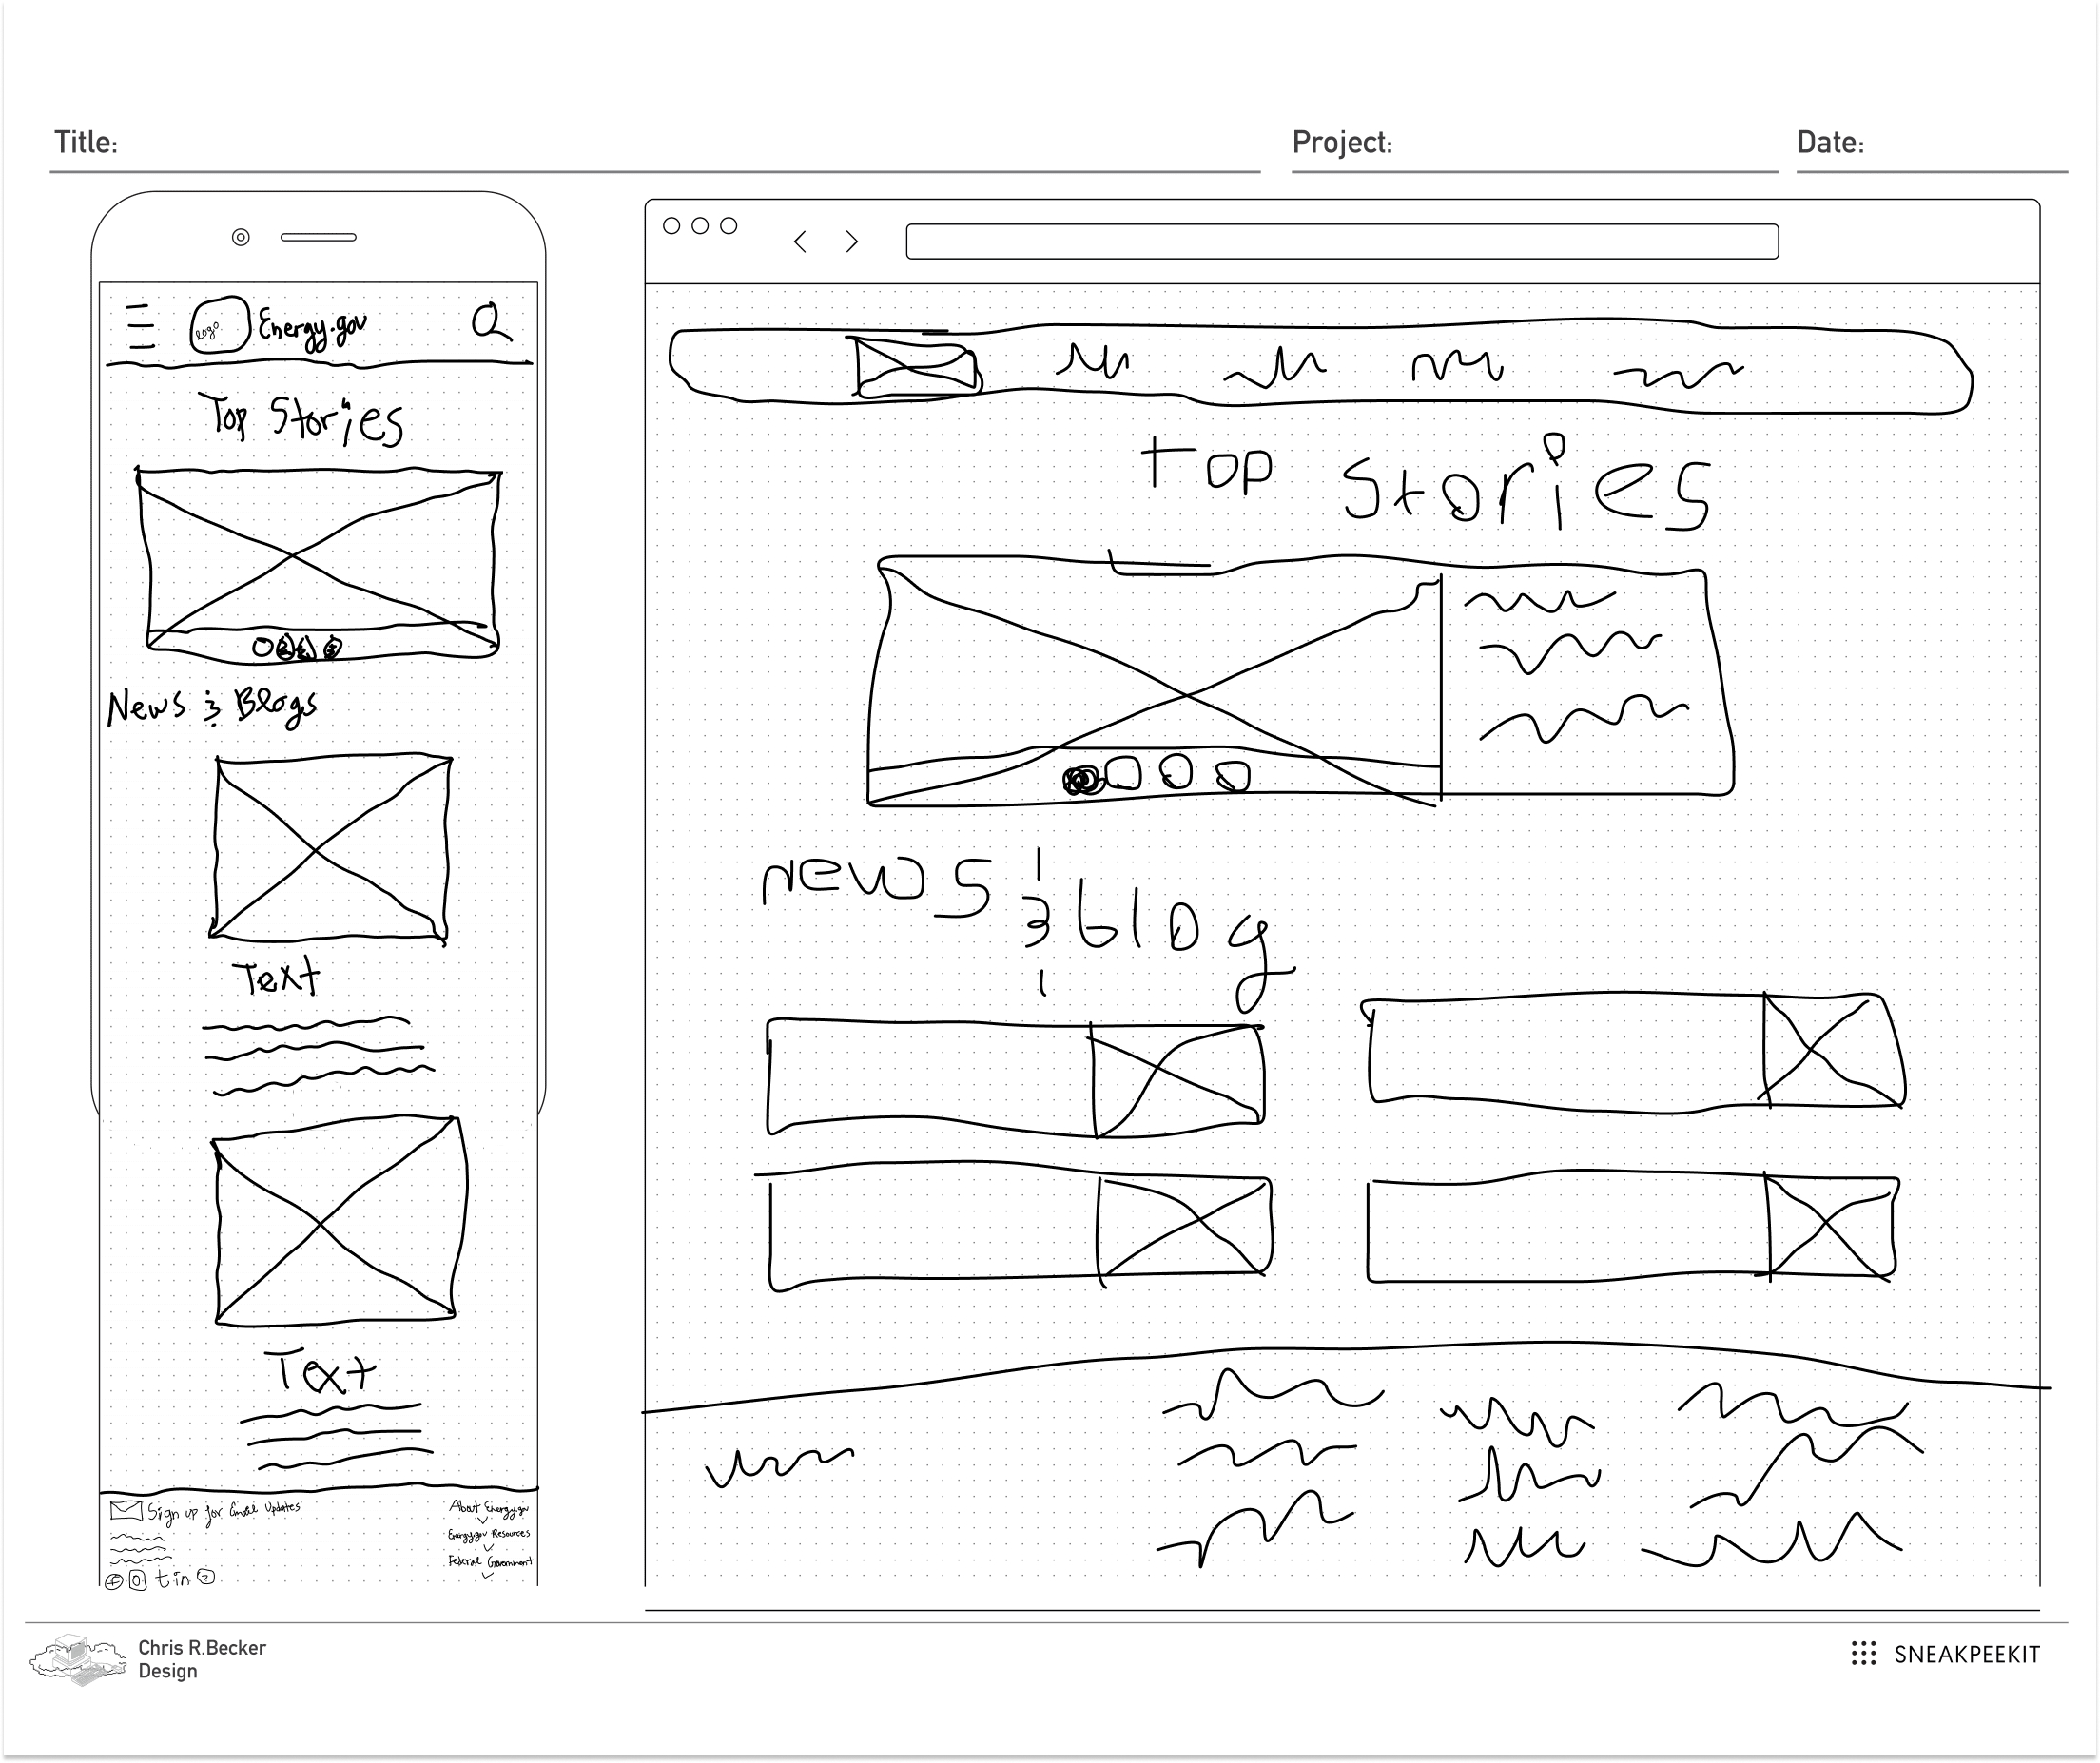 Title:
Project:
Date:
logo
Energy.gov
Top Stories
News & Blogs
Text
Text
Sign up for Email Updates
About Energy.gov
Energy.gov Resources
Federal Government
t in
top stories
news & blog
Chris R.Becker
Design
SNEAKPEEKIT